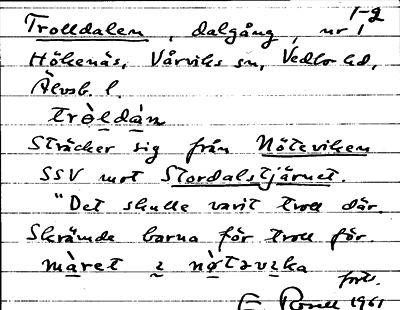 1-2
Trolldalen, dalgång, nr 1
Hökenäs, Vårviks sn, Vedbo hd,
Älvsb. l.
tròldàn
Sträcker sig från Nöteviken
SSV mot Stordalstjärnet.
"Det skulle varit troll där.
Skrämde barna för troll för.
màret i nø̀təvika
forts.
E. Rosell 1961